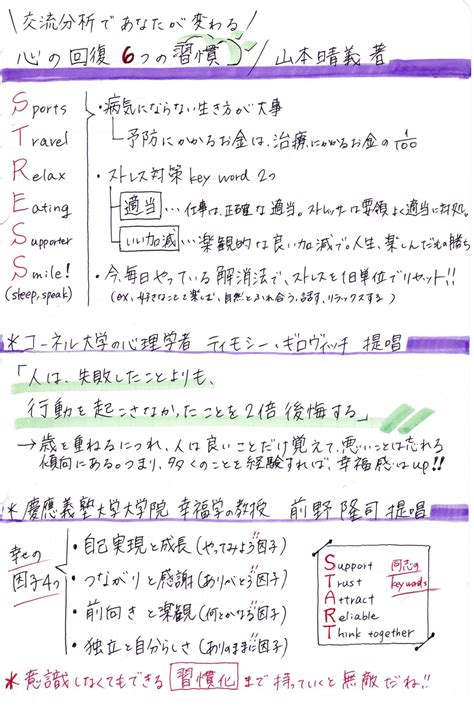 \交流分析であなたが変わる/
心の回復 6つの習慣 / 山本晴義 著
Sports
Travel
Relax
Eating
Supporter
Smile!
(sleep, speak)
・病気にならない生き方が大事
└予防にかかるお金は、治療にかかるお金の1/100
・ストレス対策 key word 2つ
適当…仕事は、正確な適当。ストレッサーは要領よく適当に対処。
いい加減…楽観的な良い加減で。人生、楽しんだもの勝ち
・今、毎日やっている解消法で、ストレスを1日単位でリセット!!
(ex. 好きなことを楽しむ、自然とふれ合う、話す、リラックスする)
*コーネル大学の心理学者 ティモシー・ギロヴィッチ 提唱
「人は、失敗したことよりも、
行動を起こさなかったことを2倍後悔する」
→歳を重ねるにつれ、人は良いことだけ覚えて、悪いことは忘れる
傾向にある。つまり、多くのことを経験すれば、幸福感はup!!
*慶應義塾大学大学院 幸福学の教授 前野 隆司 提唱
幸せの
因子4つ
・自己実現と成長(やってみよう!!因子)
・つながりと感謝(ありがとう!!因子)
・前向きと楽観(何とかなる!!因子)
・独立と自分らしさ(ありのままに!!因子)
Support
Trust
Attract
Reliable
Think together
同志の
key words
*意識しなくてもできる習慣化まで持っていくと無敵だね!!